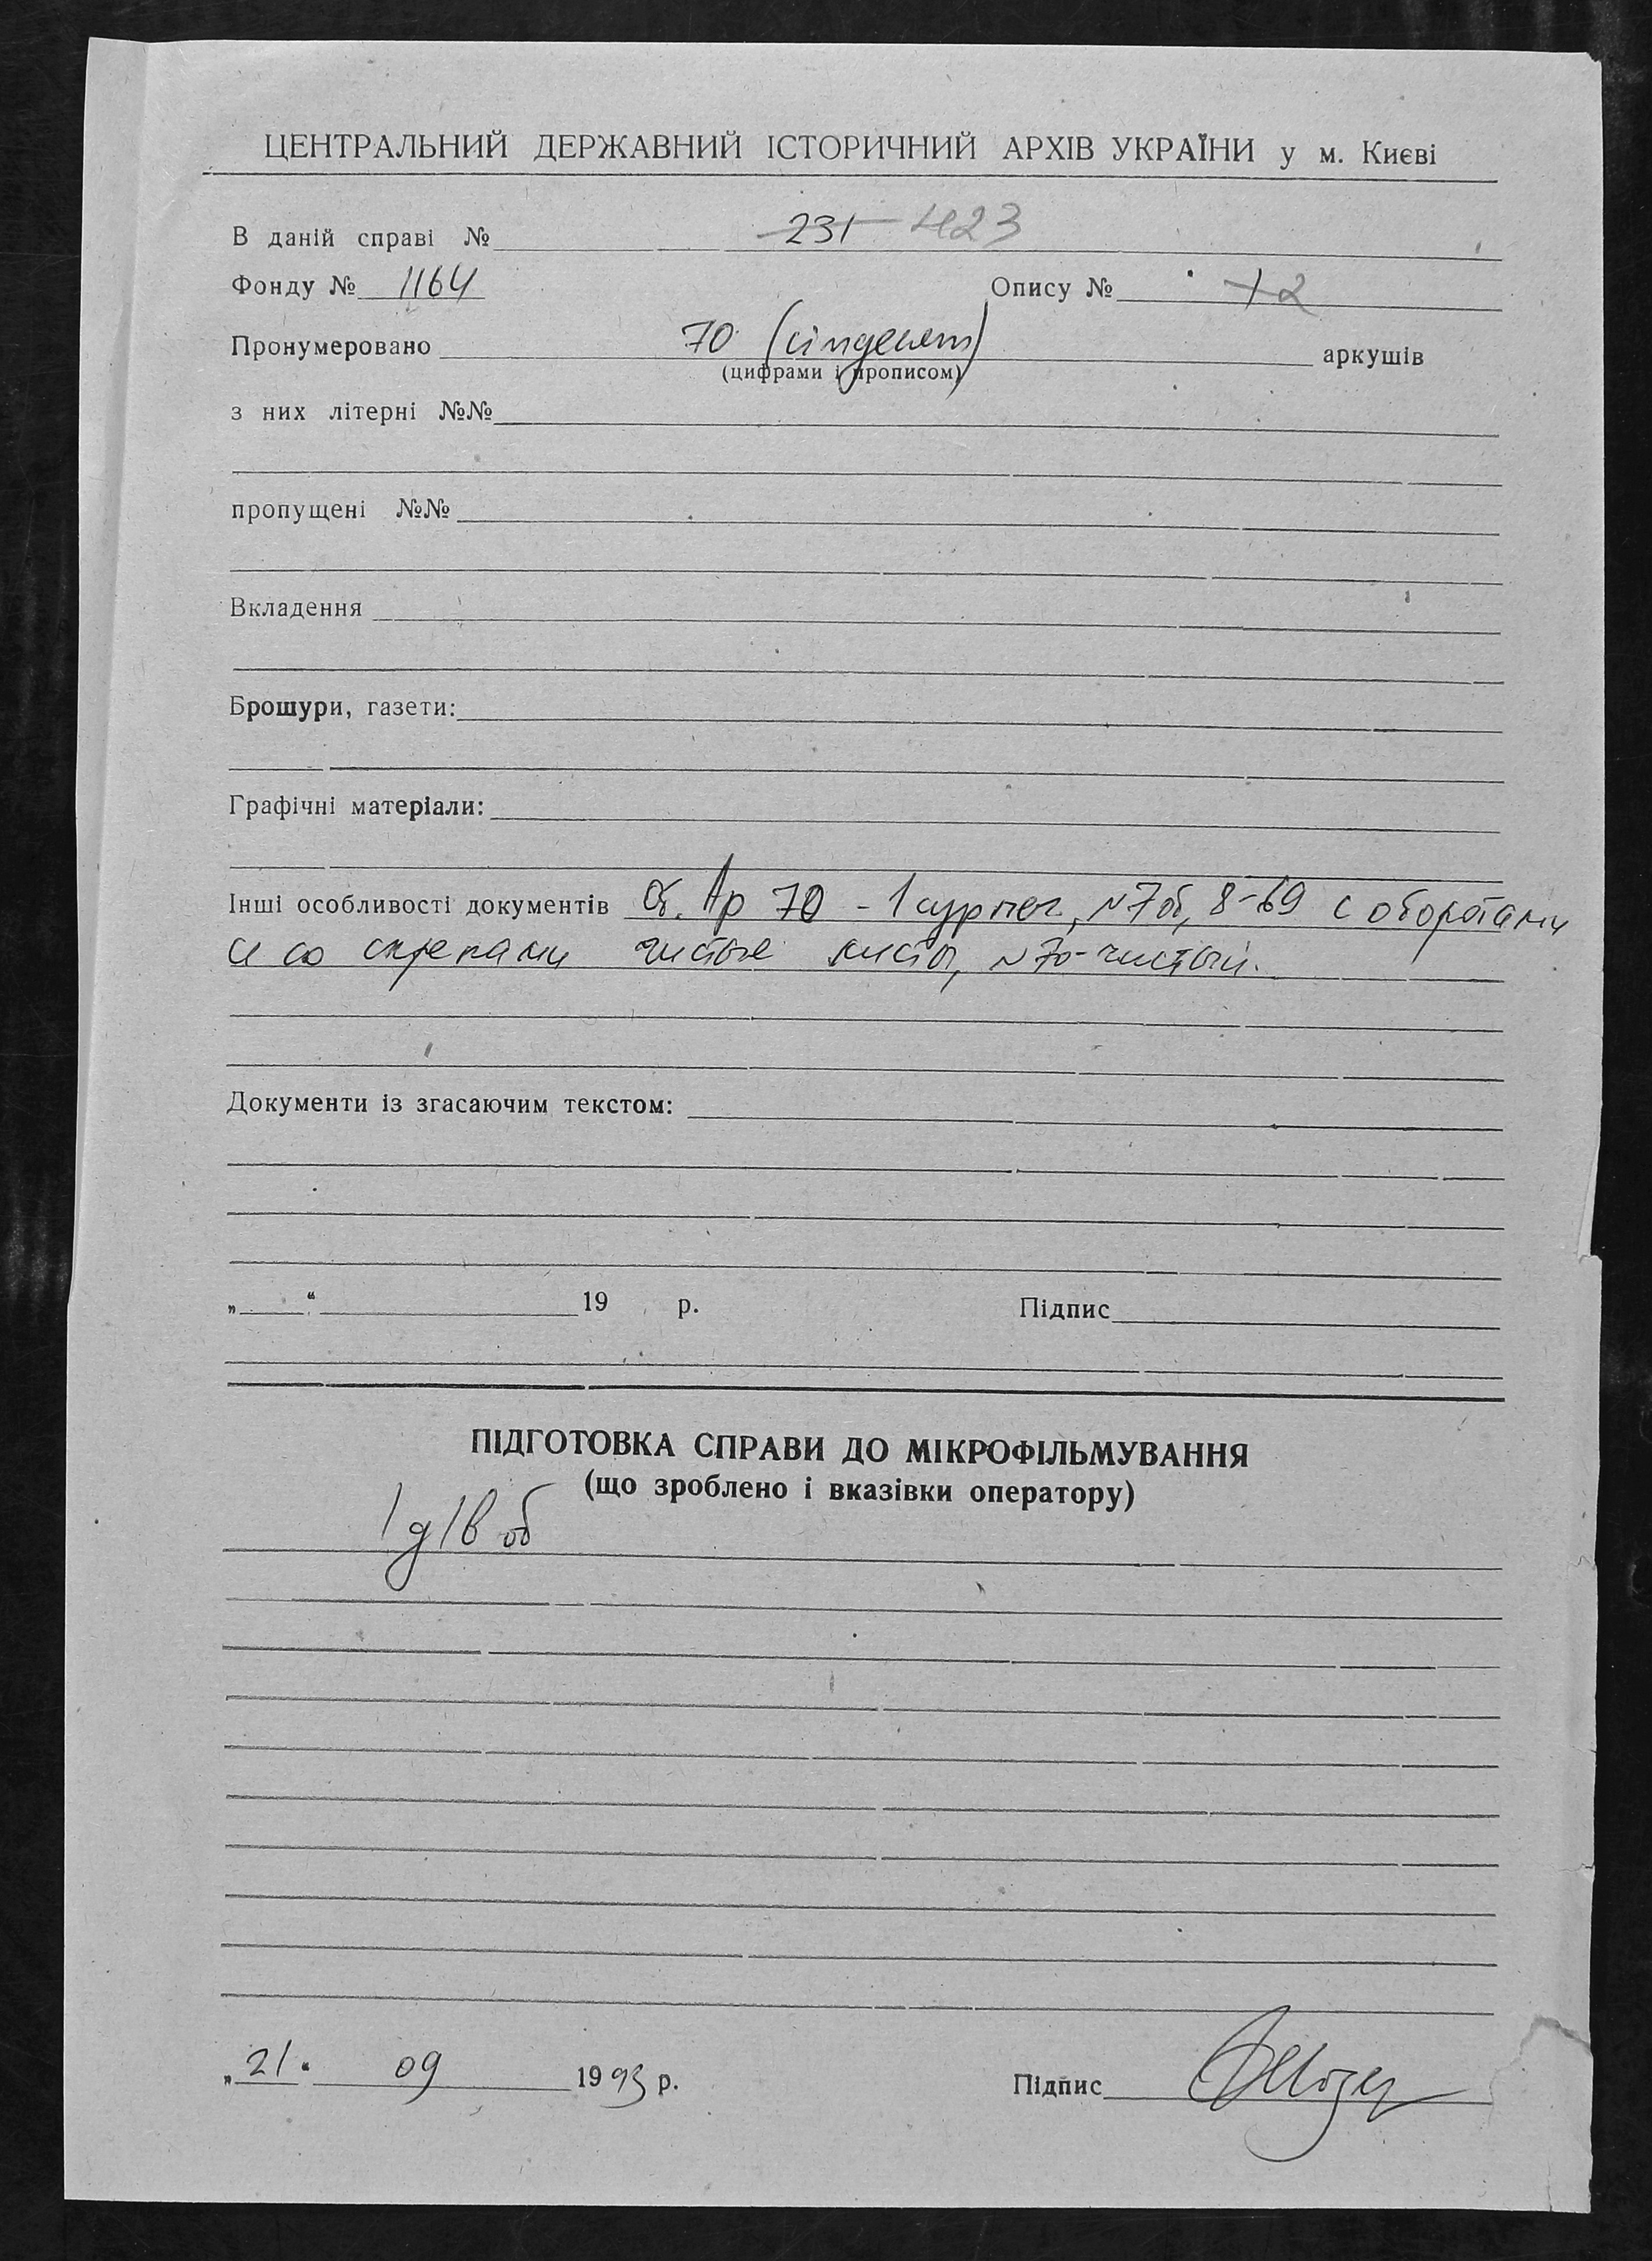 ЦЕНТРАЛЬНИЙ ДЕРЖАВНИЙ ІСТОРИЧНИЙ АРХІВ УКРАЇНИ у м. Києві
В даній справі № 231 423
Фонду № 1164 Опису № 1 2
Пронумеровано 70 (сімдесят) аркушів
(цифрами і прописом)
з них літерні №№
пропущені №№
Вкладення
Брошури, газети:
Графічні матеріали:
Інші особливості документів Ар 70 - 1 сург печ., №7об, 8-69 с оборотами
и со скрепами чистые листы, №70-чистый.
Документи із згасаючим текстом:
„ “ 19 р. Підпис
ПІДГОТОВКА СПРАВИ ДО МІКРОФІЛЬМУВАННЯ
(що зроблено і вказівки оператору)
об
„21“ 09 1993 р. Підпис